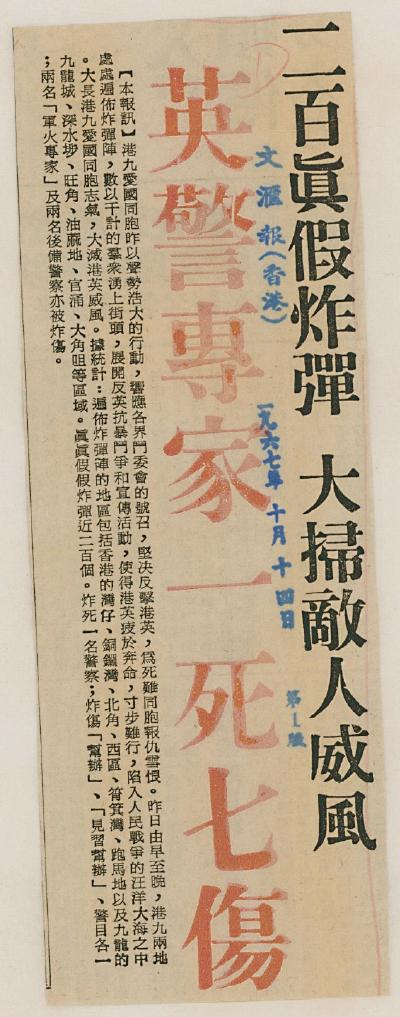 二百眞假炸彈 大掃敵人威風
文滙報(香港) 一九六七年十月十四日 第1版
英警專家一死七傷
【本報訊】港九愛國同胞昨以聲勢浩大的行動,響應各界鬥委會的號召,堅决反擊港英,爲死難同胞報仇雪恨。昨日由早至晚,港九兩地
處處遍佈炸彈陣,數以千計的羣衆湧上街頭,展開反英抗暴鬥爭和宣傳活動,使得港英疲於奔命,寸步難行,陷入人民戰爭的汪洋大海之中
。大長港九愛國同胞志氣,大滅港英威風。據統計:遍佈炸彈陣的地區包括香港的灣仔、銅鑼灣、北角、西區、筲箕灣、跑馬地以及九龍的
九龍城、深水埗、旺角、油蔴地、官涌、大角咀等區域。眞眞假假炸彈近二百個。炸死一名警察;炸傷「幫辦」、「見習幫辦」、警目各一
;兩名「軍火專家」及兩名後備警察亦被炸傷。